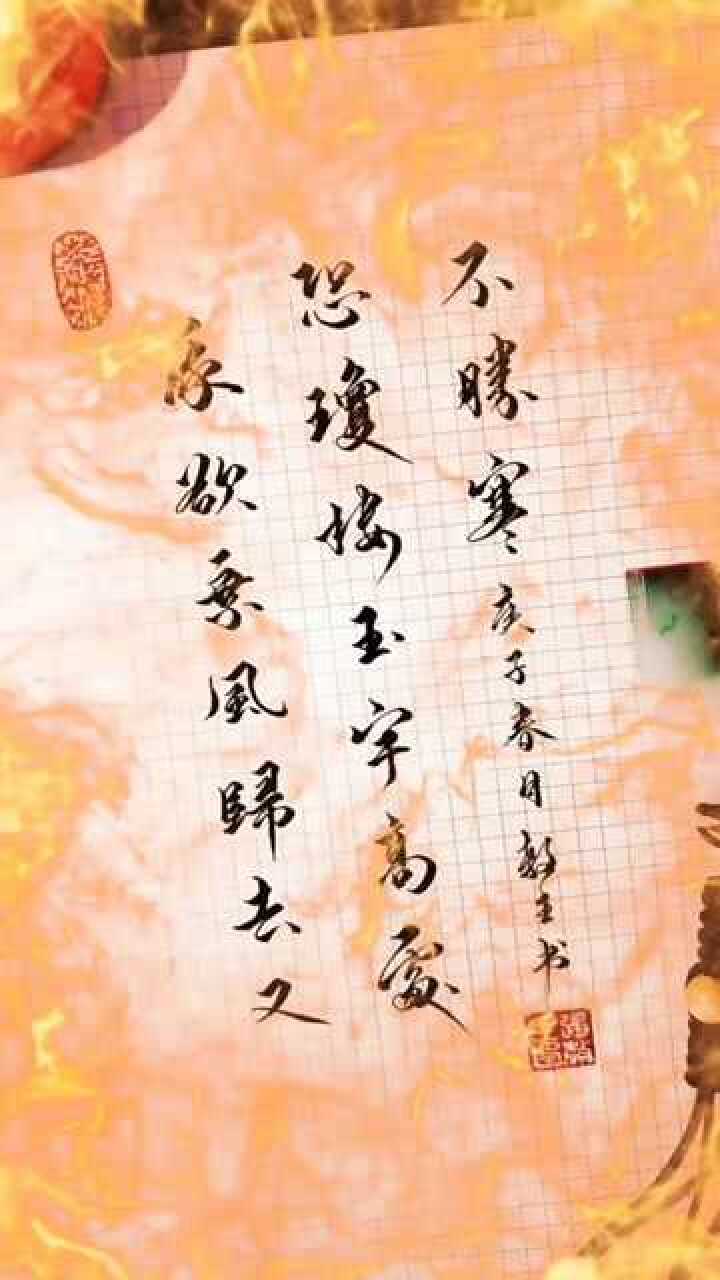 我欲乘風歸去又
恐瓊樓玉宇高處
不勝寒
庚子春月书